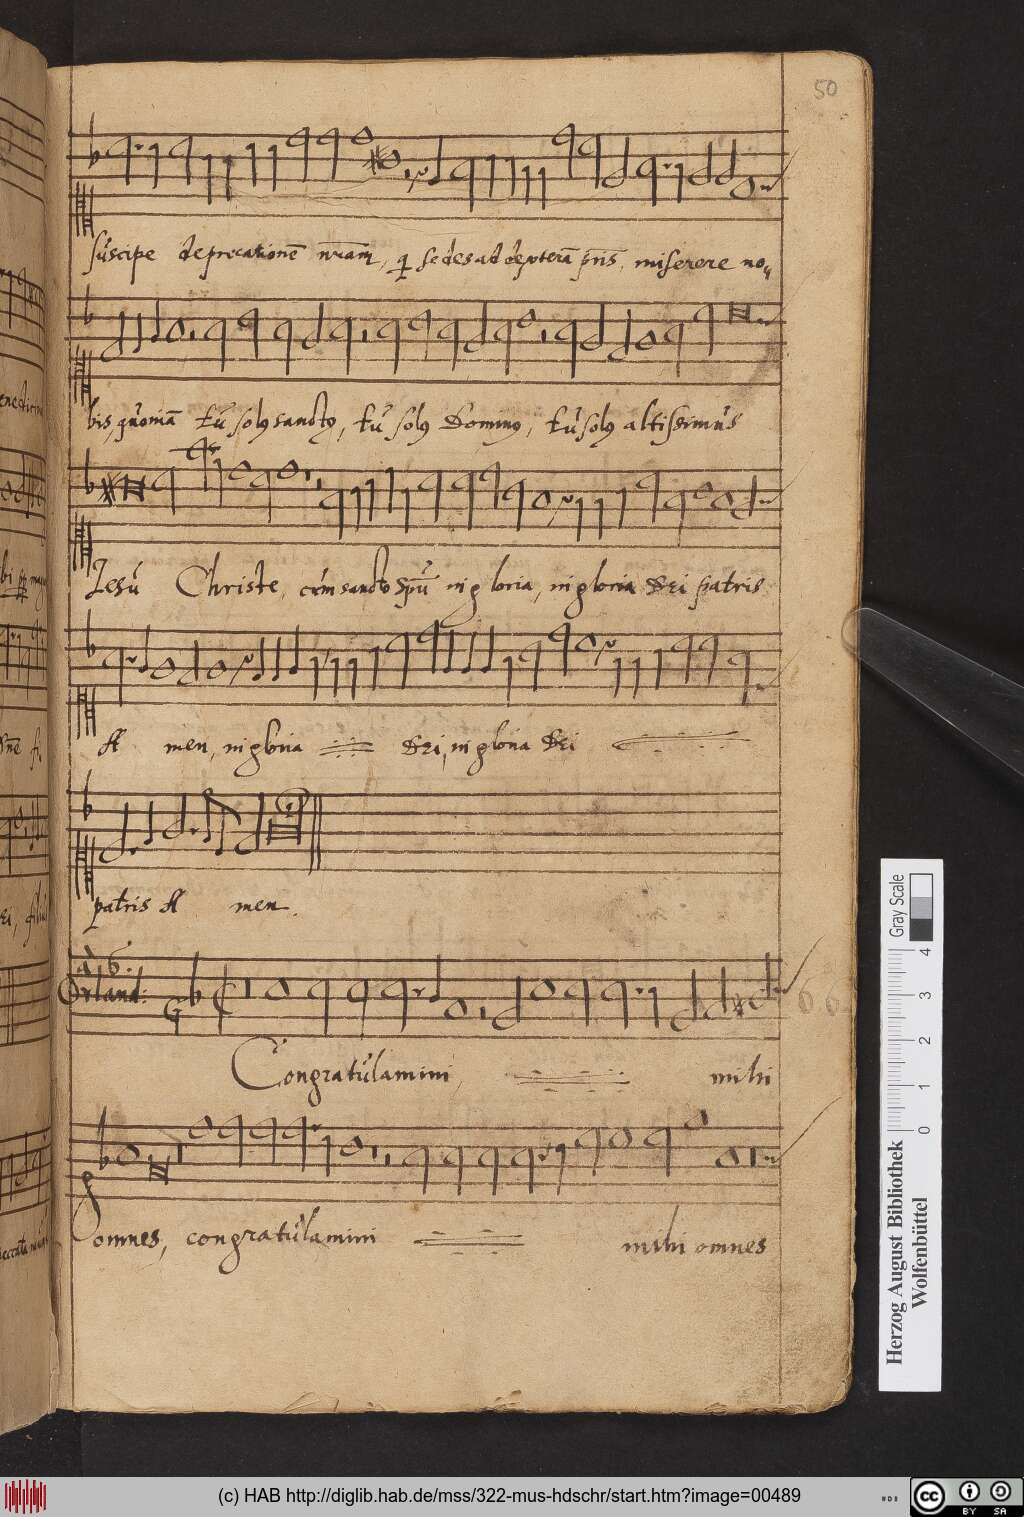 50
suscipe deprecationē nr̄am, q̄ sedes ad dexterā pr̄is, miserere no„
bis, quoniā tu solus sanctus, tu solus Dominus, tu solus altissimus
Iesu Christe, cum sancto spū in gloria, in gloria Dei patris
A men, in gloria Dei, in gloria Dei
patris A men.
A 6.
Orland:
Congratulamini, mihi
omnes, congratulamini mihi omnes
Gray Scale
0 1 2 3 4
Herzog August Bibliothek
Wolfenbüttel
(c) HAB http://diglib.hab.de/mss/322-mus-hdschr/start.htm?image=00489
cc BY SA